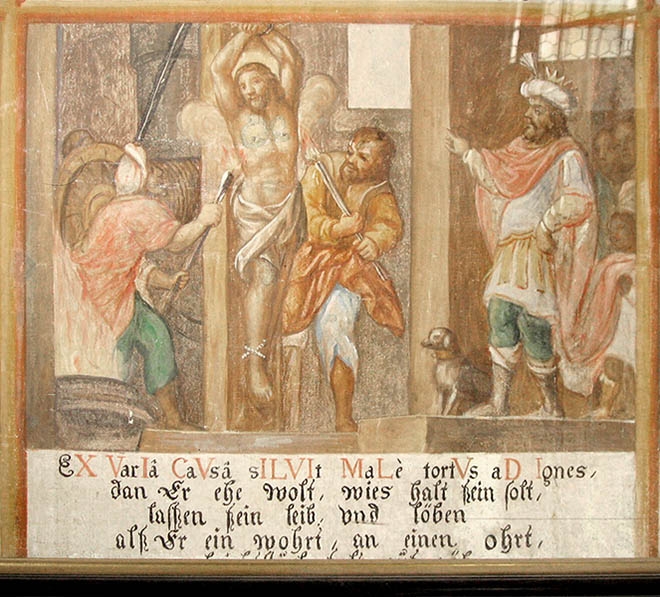 EX VarIâ CaVsâ sILVIt MaLè tortVs aD Ignes,
dan Er ehe wolt, wies halt sein solt,
lassen sein leib, vnd löben
alß Er ein wohrt, an einen ohrt,